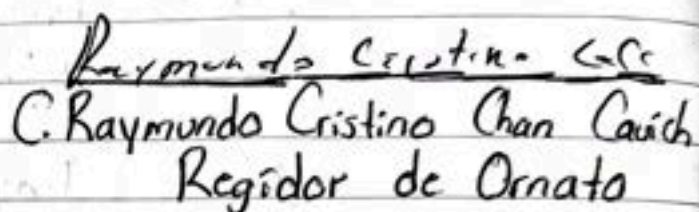 Raymundo Cristino
C. Raymundo Cristino Chan Cauich
Regidor de Ornato